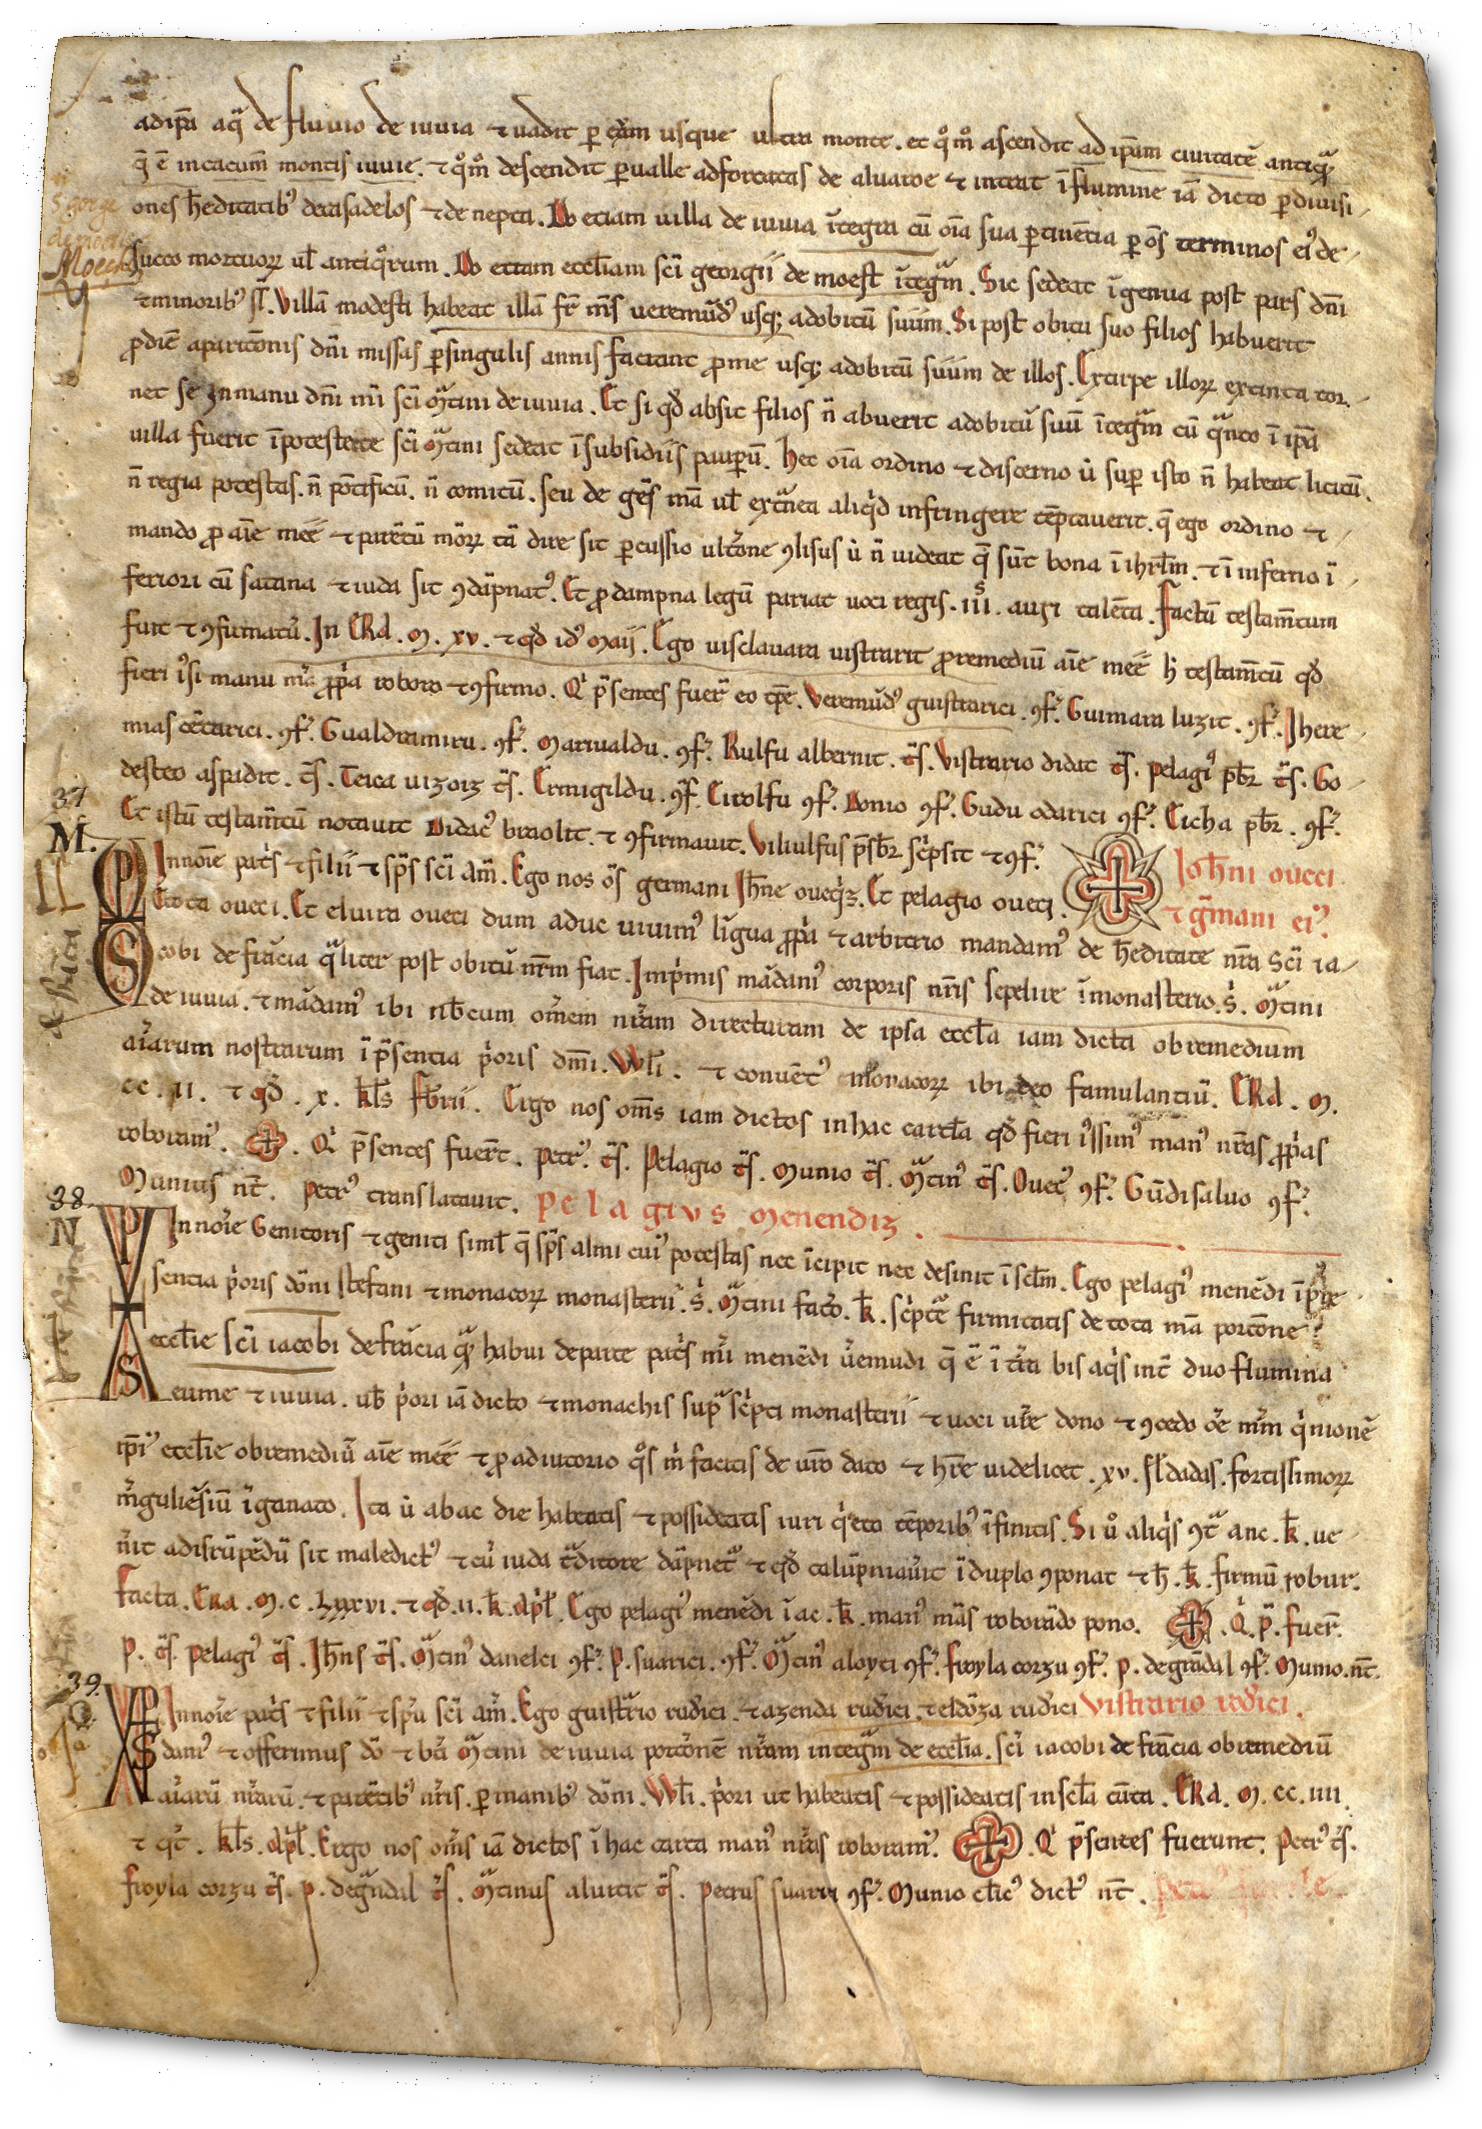 adipā aq̄ de fluvio de iuuia ⁊ uadit per eam usque ultra monte. et q°m° ascendit ad ipsam ciuitatē antiquā
q̄ ē in cacum̄ montis iuuie. ⁊ q°m° descendit per ualle ad forcatas de aluaroe ⁊ intrat ī flumine iā dicto per diuisi
ones h̄editatib; de casadelos ⁊ de nepta. Do etiam uilla de iuuia ītegra cū om̄ia sua pertinētia per om̄s terminos ei; de
succo mortuoꝝ ul antiq°rum. Do etiam eccl̄iam sc̄i georgii de moest ītegrā. Sic sedeat īgenua post pars dn̄i
⁊ minorib; sī. Villā modesti habeat illā fr̄ m̄s ueremūd; usq; ad obitū suum. Si post obitu suo filios habuerit
p̱ diē aparitōnis dn̄i missas per singulis annis faciant p̱ me usq; ad obitū suum de illos. Extirpe illoꝝ extinta tor.
net se in manu dn̄i m̄i sc̄i M̃tini de iuuia. Et si qd̄ absit filios n̄ abuerit ad obitū suū ītegrā cū q̃nto ī ipā
uilla fuerit ī potestate sc̄i M̃tini sedeat ī subsidiis pauperū. Hec om̄ia ordino ⁊ discerno ut super isto n̄ habeat licitū
n̄ regia potestas. n̄ pōtificū. n̄ comitū. seu de gēs mā ul extranea aliqd̄ infringere tēptauerit. q̄ ego ordino ⁊
mando p̱ aīe mee ⁊ parētū m̄oꝝ tā dire sit percussio ultiōne ꝯlisus ut n̄ uideat q̄ sūt bona ī ihrl̄m. ⁊ ī inferno ī
feriori cū satana ⁊ iuda sit ꝯdāpnat;. Et p̱ dampna legū pariat uoci regis. III. auri talēta. Factū testam̄tum
fuit ⁊ ꝯfirmatū. In ERA. M. xv. ⁊ qd̄ id; Maii. Ego uisclauara uistrarit p̱ remediū aīe mee h̄ testam̄tū qd̄
fieri i;si manu m̄a p̱p̄a roboro ⁊ ꝯfirmo. Qi p̄sentes fuer̄ eo tp̄e. Veremūd; guistrarici. ꝯf. Guimara luzit. ꝯf. Ihere
mias cētarici. ꝯf. Gualdramiru. ꝯf. Mariualdu. ꝯf. Rulfu albernit. ts̄. Vistrario didat ts̄. Pelagi; pb̄r ts̄. Go
desteo aspidit. ts̄. Teica uizoiz ts̄. Ermigildu. ꝯf. Citolfu ꝯf. Donio ꝯf. Gudu odarici ꝯf. Cicha pb̄r. ꝯf.
Et istū testam̄tū notauit Didac; braolit. ⁊ ꝯfirmauit. Viliulfus p̄sb̄r sc̄psit ⁊ ꝯf.
In noīe pat̄s ⁊ filii ⁊ sp̄s sc̄i Am̄. Ego nos om̄s germani Ih̄ne oueqiz. Et pelagio oueci. Ioh̄ni oueci
Et tota oueci. Et eluira oueci dum aduc uiuim; līgua p̱p̄a ⁊ arbitrio mandam; de h̄editate nr̄a Sc̄i ia ⁊ ḡmani ei;.
cobi de frācia q̃liter post obitū nr̄m fiat. Imp̄mis mādam; corporis nr̄is sepelire ī monasterio. s̄. M̃tini
de iuuia. ⁊ mādam; ibi ub̄eum om̄em nr̄am directuram de ipsa eccl̄a iam dicta ob remedium
aīarum nostrarum ī p̄sencia p̄oris dn̄i. Wl̄i. ⁊ conuēt; monacoꝝ ibi deo famulantiū. ERA. M.
CC. II. ⁊ qd̄. x. kl̄s fb̄rii. Ergo nos om̄s iam dictos in hac cart̄la qd̄ fieri i;ssim; man; nr̄as p̱p̄as
roboram;. Qi p̄sentes fuer̄t. Petr; ts̄. Pelagio ts̄. Munio ts̄. M̃tin; ts̄. Ouec; ꝯf. Gūdisaluo ꝯf.
Munius nt̄. Petr; translatauit. Pelagius Menendiz.
In noīe Genitoris ⁊ geniti simł q̄ sp̄s almi cui; potestas nec īcipit nec desinit ī sc̄lm. Ego pelagi; menēdi ī pre
sentia p̄oris dōni stefani ⁊ monacoꝝ monasterii. s̄. M̃tini facio. k̄. sc̄pte firmitatis de tota mā portōne
eccl̄ie sc̄i iacobi de frācia quā habui de parte pat̄s m̄i menēdi ūemudi q̄ ē ī t̄ra bis aq̄s int̄ duo flumina
eume ⁊ iuuia. ub̄ p̄ori iā dicto ⁊ monachis sup̃ sc̄pti monasterii ⁊ uoci ur̄e dono ⁊ ꝯcedo om̄e m̄m q̄nionē
ip̄i; eccl̄ie ob remediū aīe mee ⁊ p̱ adiutorio q°s m̄ facitis de ur̄o dato ⁊ hr̄e uidelicet. xv. sl̄dadas. fortissimoꝝ
m̄guliēsiū ī ganato. Ita ut ab ac die habeatis ⁊ possideatis iuri q̄eto tēporib; īfinitis. Si u° aliq̄s ꝯt̃ anc. k̄. ue
n̄it ad isrūpēdū sit maledict; ⁊ cū iuda t̃ditore dāpnet̃ ⁊ qd̄ calūpniau̇it ī duplo ꝯponat ⁊ h̄. k̄. firmū robur.
Facta. ERA. M. C. LXXVI. ⁊ qd̄. II. k̄. Ap̄l. Ego pelagi; menēdi ī ac. k̄. man; mās roborādo pono. Q̄. p̄. fuer̄.
P. ts̄. Pelagi; ts̄. Ih̄ns ts̄. M̃tin; danelci ꝯf. P. suarici. ꝯf. M̃tin; aloyti ꝯf. Froyla corzu ꝯf. P. de grādal ꝯf. Munio. nt̄.
In noīe pat̄s ⁊ filii ⁊ sp̄u sc̄i am̄. Ego guist̃rio rud̄ici. ⁊ azenda rud̄ici. ⁊ eldōza rud̄ici Vistrario rod̄ici.
dam; ⁊ offerimus dō ⁊ b̄a M̃tini de iuuia portōnē nr̄am integrā de eccl̄ia. sc̄i iacobi de frācia ob remediū
aīarū nr̄arū. ⁊ parētib; nr̄is. per manib; dōni. Wl̄i. p̄ori ut habeatis ⁊ possideatis in secl̄a cūta. ERA. M. CC. IIII
⁊ qt̄. kl̄s. Ap̄l. Ergo nos om̄s iā dictos ī hac carta man; nr̄as roboram;. Qi p̄sentes fuerunt. Petr; ts̄.
Froyla corzu ts̄. P. de gr̃ndal ts̄. M̃tinus aluitit ts̄. Petrus suarii ꝯf. Munio cl̄ic; dict; nt̄.
S. Jorge
de
Moeche
37
M.
38.
N
39.